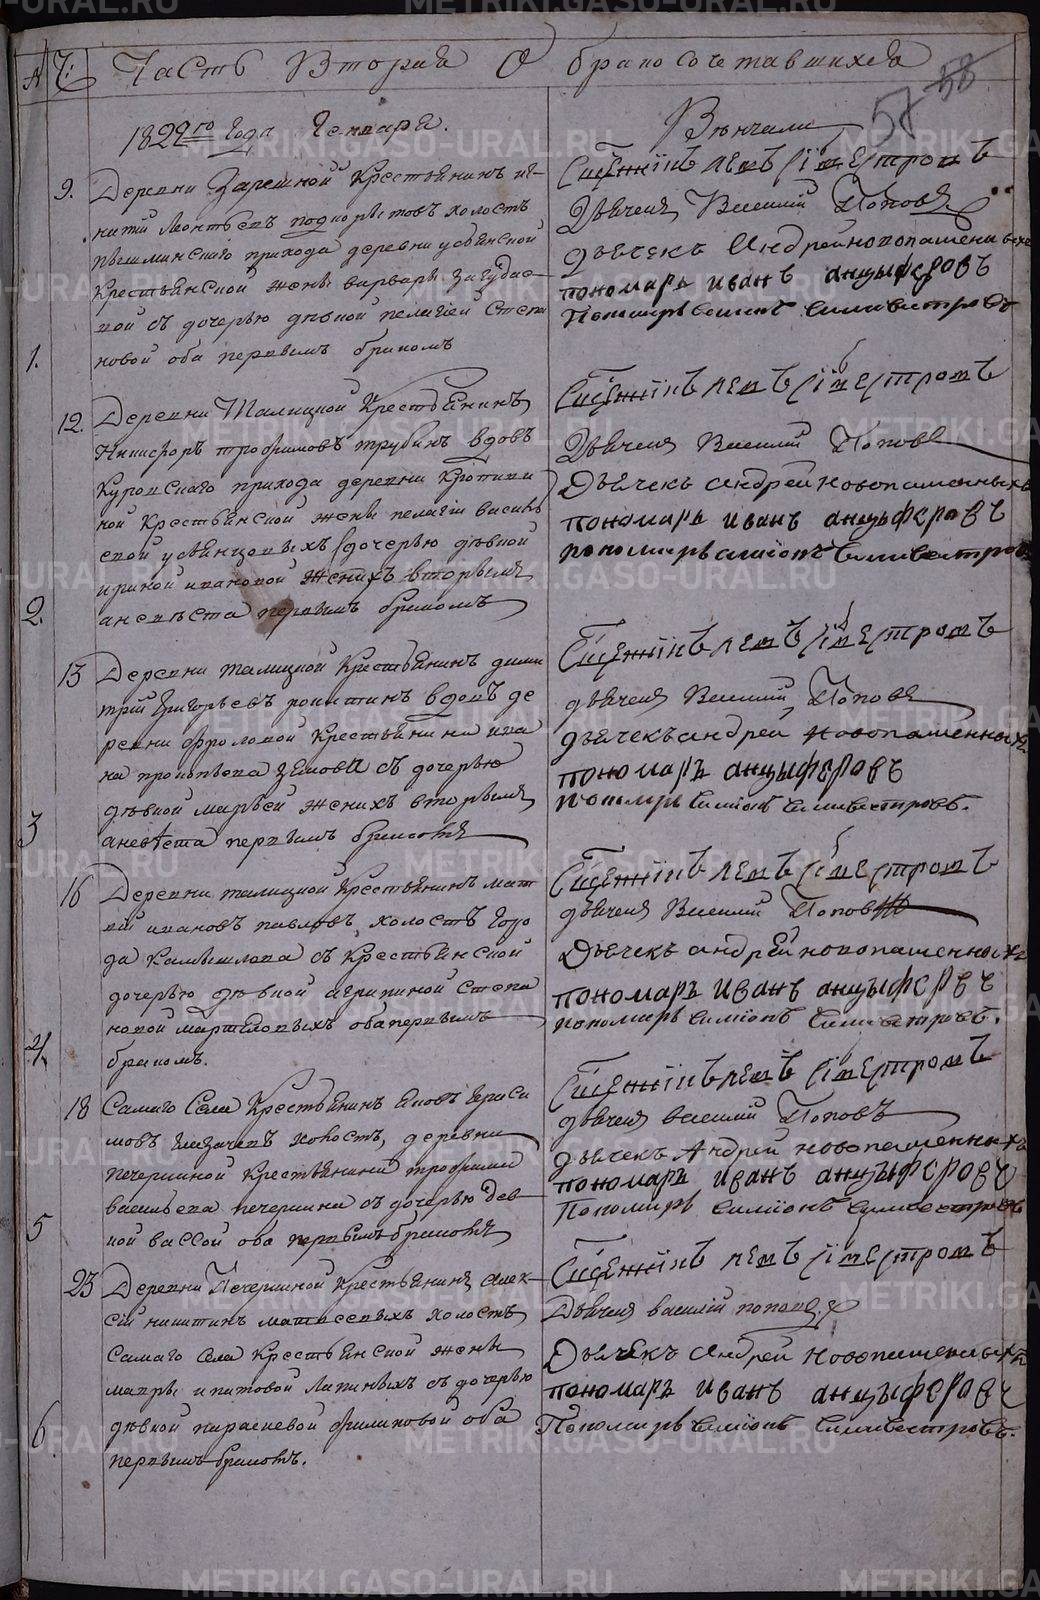 Ч: Часть Вторая О бракосочетавшихся
57 58
1829го Года Генваря.
Венчали
9. Деревни Заречной Крестьянинъ иг-
натий Леонтьевъ подкорытовъ холостъ
пышминскаго прихода деревни усьянской
Крестьянской жены варвары
ной съ дочерью девкой пелагией Степа
новой оба первымъ бракомъ
1.
Священникъ левъ Сильвестровъ
Дьячекъ Василий Поповъ
дьячекъ Андрей новопашенныхъ
пономарь иванъ анцыферовъ
Пономарь Симионъ Силивестровъ
12. Деревни Талицкой Крестьянинъ
Никифоръ трофимовъ трубинъ вдовъ
Куровскаго прихода деревни Кротики
ной Крестьянской жены пелагии василь
евой усьянцовыхъ съ дочерью девкой
ириной ивановой женихъ вторымъ
а невеста первымъ бракомъ
2.
Священникъ левъ Сильвестровъ
Дьячекъ Василий Поповъ
Дьячекъ андрей новопашенныхъ
пономарь иванъ анцыферовъ
пономарь симионъ Силивестровъ
13 Деревни талицкой Крестьянинъ дими
трий Григорьевъ вдовъ де
ревни Фроловой Крестьянина ива
на прокопьева съ дочерью
девкой марьей женихъ вторымъ
а невеста первымъ бракомъ
3
Священникъ левъ Сильвестровъ
дьячекъ Василий Поповъ
дьячекъ андрей новопашенныхъ
пономарь анцыферовъ
пономарь Симионъ Силивестровъ.
16 Деревни талицкой Крестьянинъ мат
вий ивановъ павловъ холостъ Горо
да Камышлова съ Крестьянской
дочерью девкой агрипиной Степа
новой оба первымъ
бракомъ.
4.
Священникъ левъ Сильвестровъ
дьячекъ Василий Поповъ
Дьячекъ андрей новопашенныхъ
пономарь иванъ анцыферовъ
пономарь Симионъ Силивестровъ.
18 Самаго Села Крестьянинъ яковъ Гераси
мовъ холостъ, деревни
печеркиной Крестьянина трофима
васильева печеркина съ дочерью дев
кой вассой оба первымъ бракомъ
5
Священникъ левъ Сильвестровъ
дьячекъ василий Поповъ
дьячекъ Андрей новопашенныхъ
пономарь иванъ анцыферовъ
Пономарь Симионъ Силивестровъ
23 Деревни Печеркиной Крестьянинъ алек
сий никитинъ матвеевыхъ холостъ
Самаго Села Крестьянской жены
мавры ипатовой Лапиныхъ съ дочерью
девкой параскевой филиповой оба
первымъ бракомъ.
6.
Священникъ левъ Сильвестровъ
Дьячекъ василий поповъ
Дьячекъ Андрей Новопашенныхъ
пономарь иванъ анцыферовъ
Пономарь Симионъ Силивестровъ.
METRIKI.GASO-URAL.RU